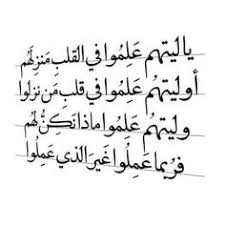 ياليتهم عَلِمُوا في القلبِ مَنزِلَهُم
أوليتَهُم عَلِمُوا في قلبِ مَن نزلوا
وليتَهُم عَلِمُوا ماذا نَكِنُّ لهُم
فَرُبما عَمِلُوا غيرَ الذي عَمِلُوا